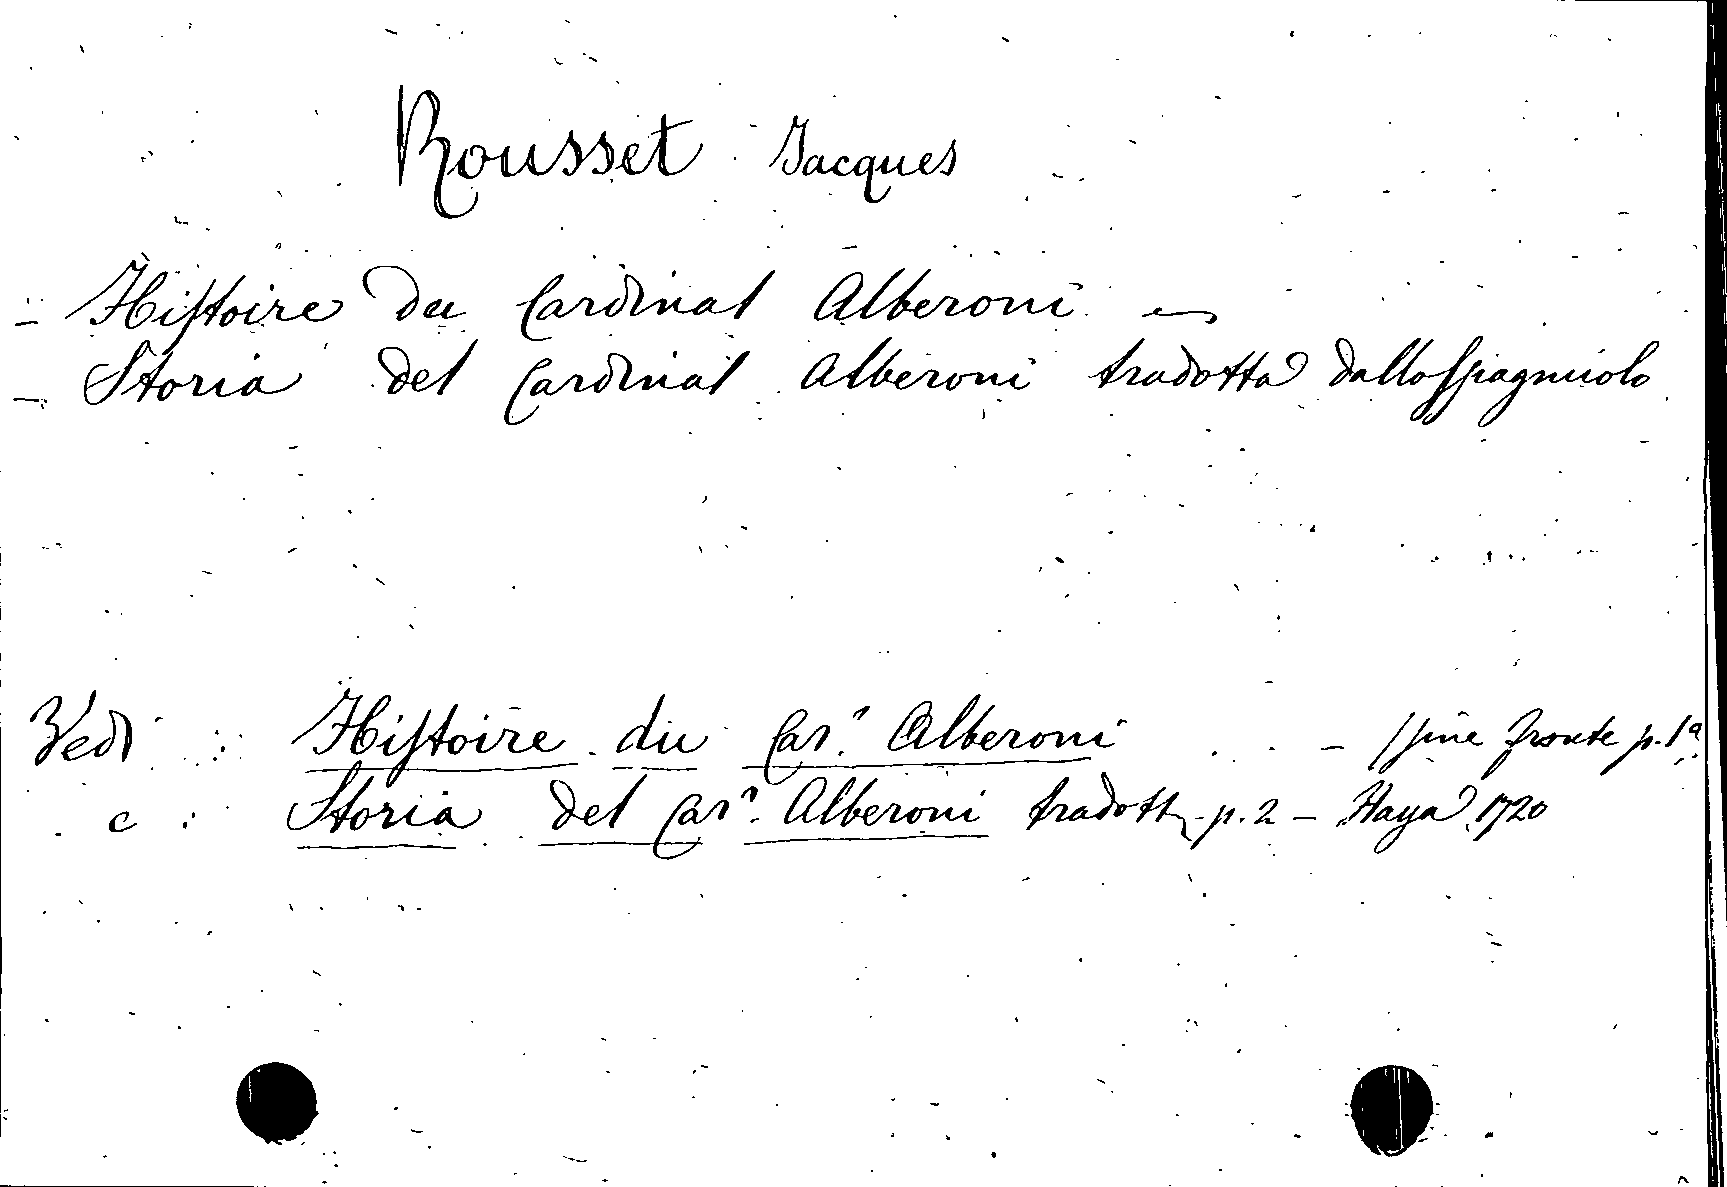 Rousset Jacques
- Histoire du Cardinal Alberoni -
- Storia del Cardinal Alberoni tradotta dallo Spagnuolo
Vedi : Histoire du Car. Alberoni - sine fronte p. 1ª
e : Storia del Car. Alberoni tradott p. 2 - Haya 1720